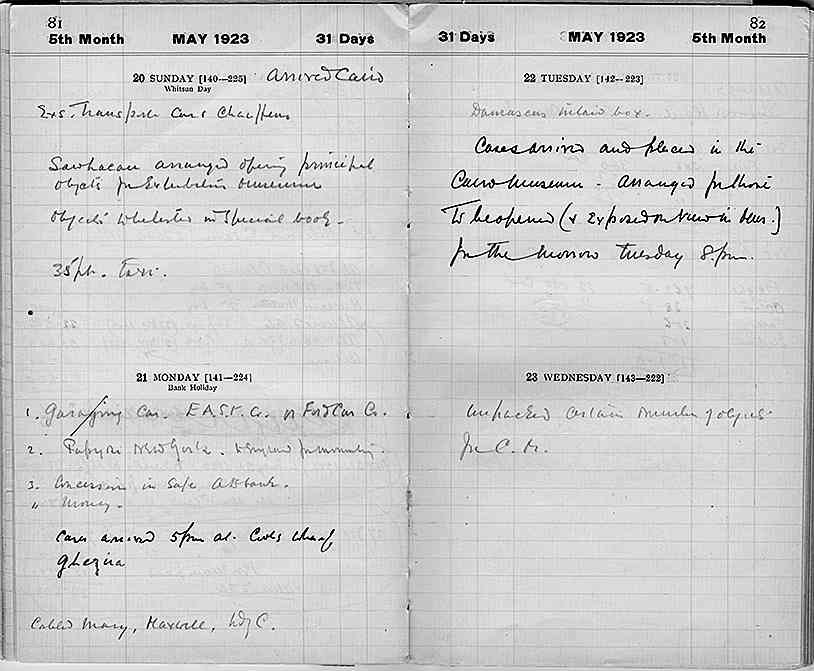 81
5th Month MAY 1923 31 Days
20 SUNDAY [140—225] Arrived Cairo
Whitsun Day
Exs. Transport Cars Chauffeur
arranged opening principal
objects for Exhibition museum
objects whilester in Special book.
35 pt. taxi.
21 MONDAY [141—224]
Bank Holiday
1. Garaging Car. E.A.S.T. Co. or Ford Car Co.
2. Papyri New York. & England for mounting.
3. Concession in Safe at bank.
" Money.
Cases arrived 5pm at Cooks wharf
Ghezira
Cabled Mary, Maxwell, Ldy C.
82
31 Days MAY 1923 5th Month
22 TUESDAY [142—223]
Damascus inlaid box.
Cases arrived and placed in the
Cairo Museum - arranged for those
to be opened (& exposed on view in Mus.)
for the morrow Tuesday 8. pm.
23 WEDNESDAY [143—222]
Unpacked certain number of objects
for C. M.